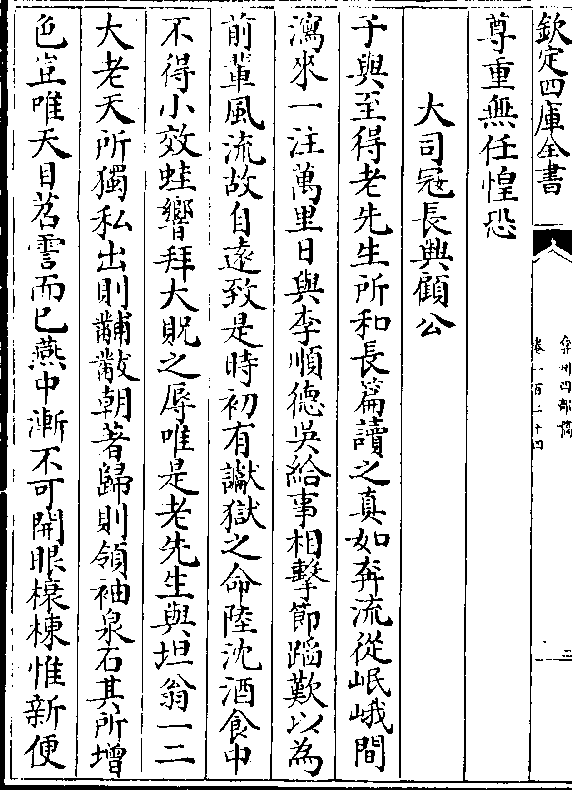 欽定四庫全書
弇州四部稿
卷一百二十四
尊重無任惶恐
大司冦長興顧公
子與至得老先生所和長篇讀之真如奔流從岷峨間
瀉來一注萬里日與李順德吳給事相擊節蹈歎以為
前輩風流故自遠致是時初有讞獄之命陸沈酒食中
不得小效蛙響拜大貺之辱唯是老先生與坦翁一二
大老天所獨私出則黼黻朝著歸則領袖泉石其所增
色豈唯天目苕霅而已燕中漸不可開眼榱棟惟新便